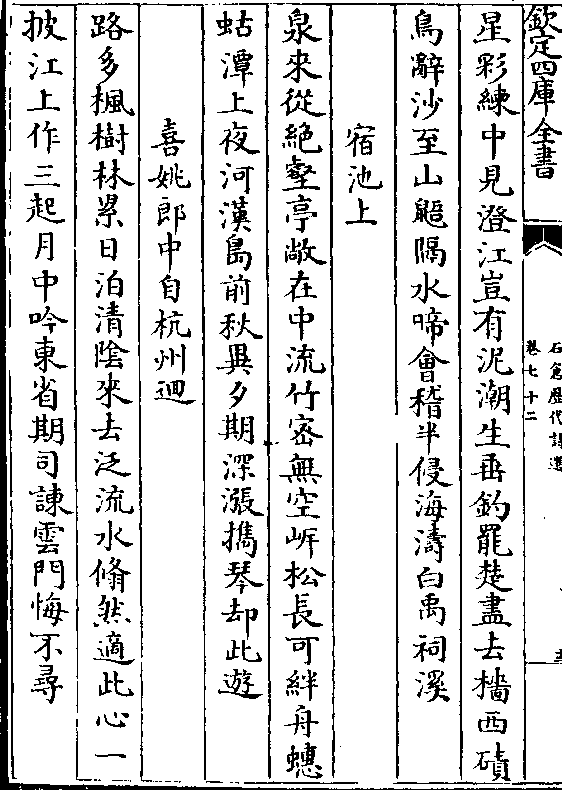 欽定四庫全書
石倉歷代詩選
卷七十二
星彩練中見澄江豈有泥潮生垂釣罷楚盡去檣西磧
鳥辭沙至山鼯隔水啼會稽半侵海濤白禹祠溪
宿池上
泉來從絕壑亭敞在中流竹密無空岍松長可絆舟蟪
蛄潭上夜河漢島前秋異夕期深漲擕琴却此遊
喜姚郎中自杭州迴
路多楓樹林累日泊清陰來去泛流水翛然適此心一
披江上作三起月中吟東省期司諫雲門悔不尋